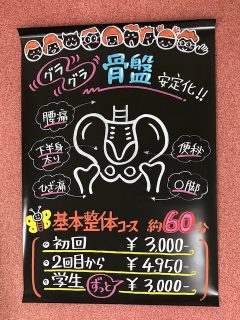 グラグラ 骨盤 安定化!!
腰痛
下半身太り
ひざ痛
便秘
O脚
基本整体コース 約60分
・初回 ¥3,000-
・2回目から ¥4,950-
・学生 ずっと ¥3,000-